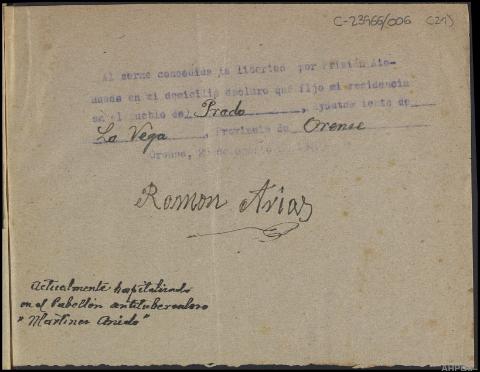 C-23966/006 (21)
Al serme concedida la libertad por Prisión Ate-
nuada en mi domicilio declaro que fijo mi residencia
en el pueblo de Prado, Ayuntamiento de
La Vega, Provincia de Orense
Orense, 2 de agosto
Ramon Arias
Actualmente hospitalizado
en el Pabellón antituberculoso
"Martinez Anido"
AHPOU